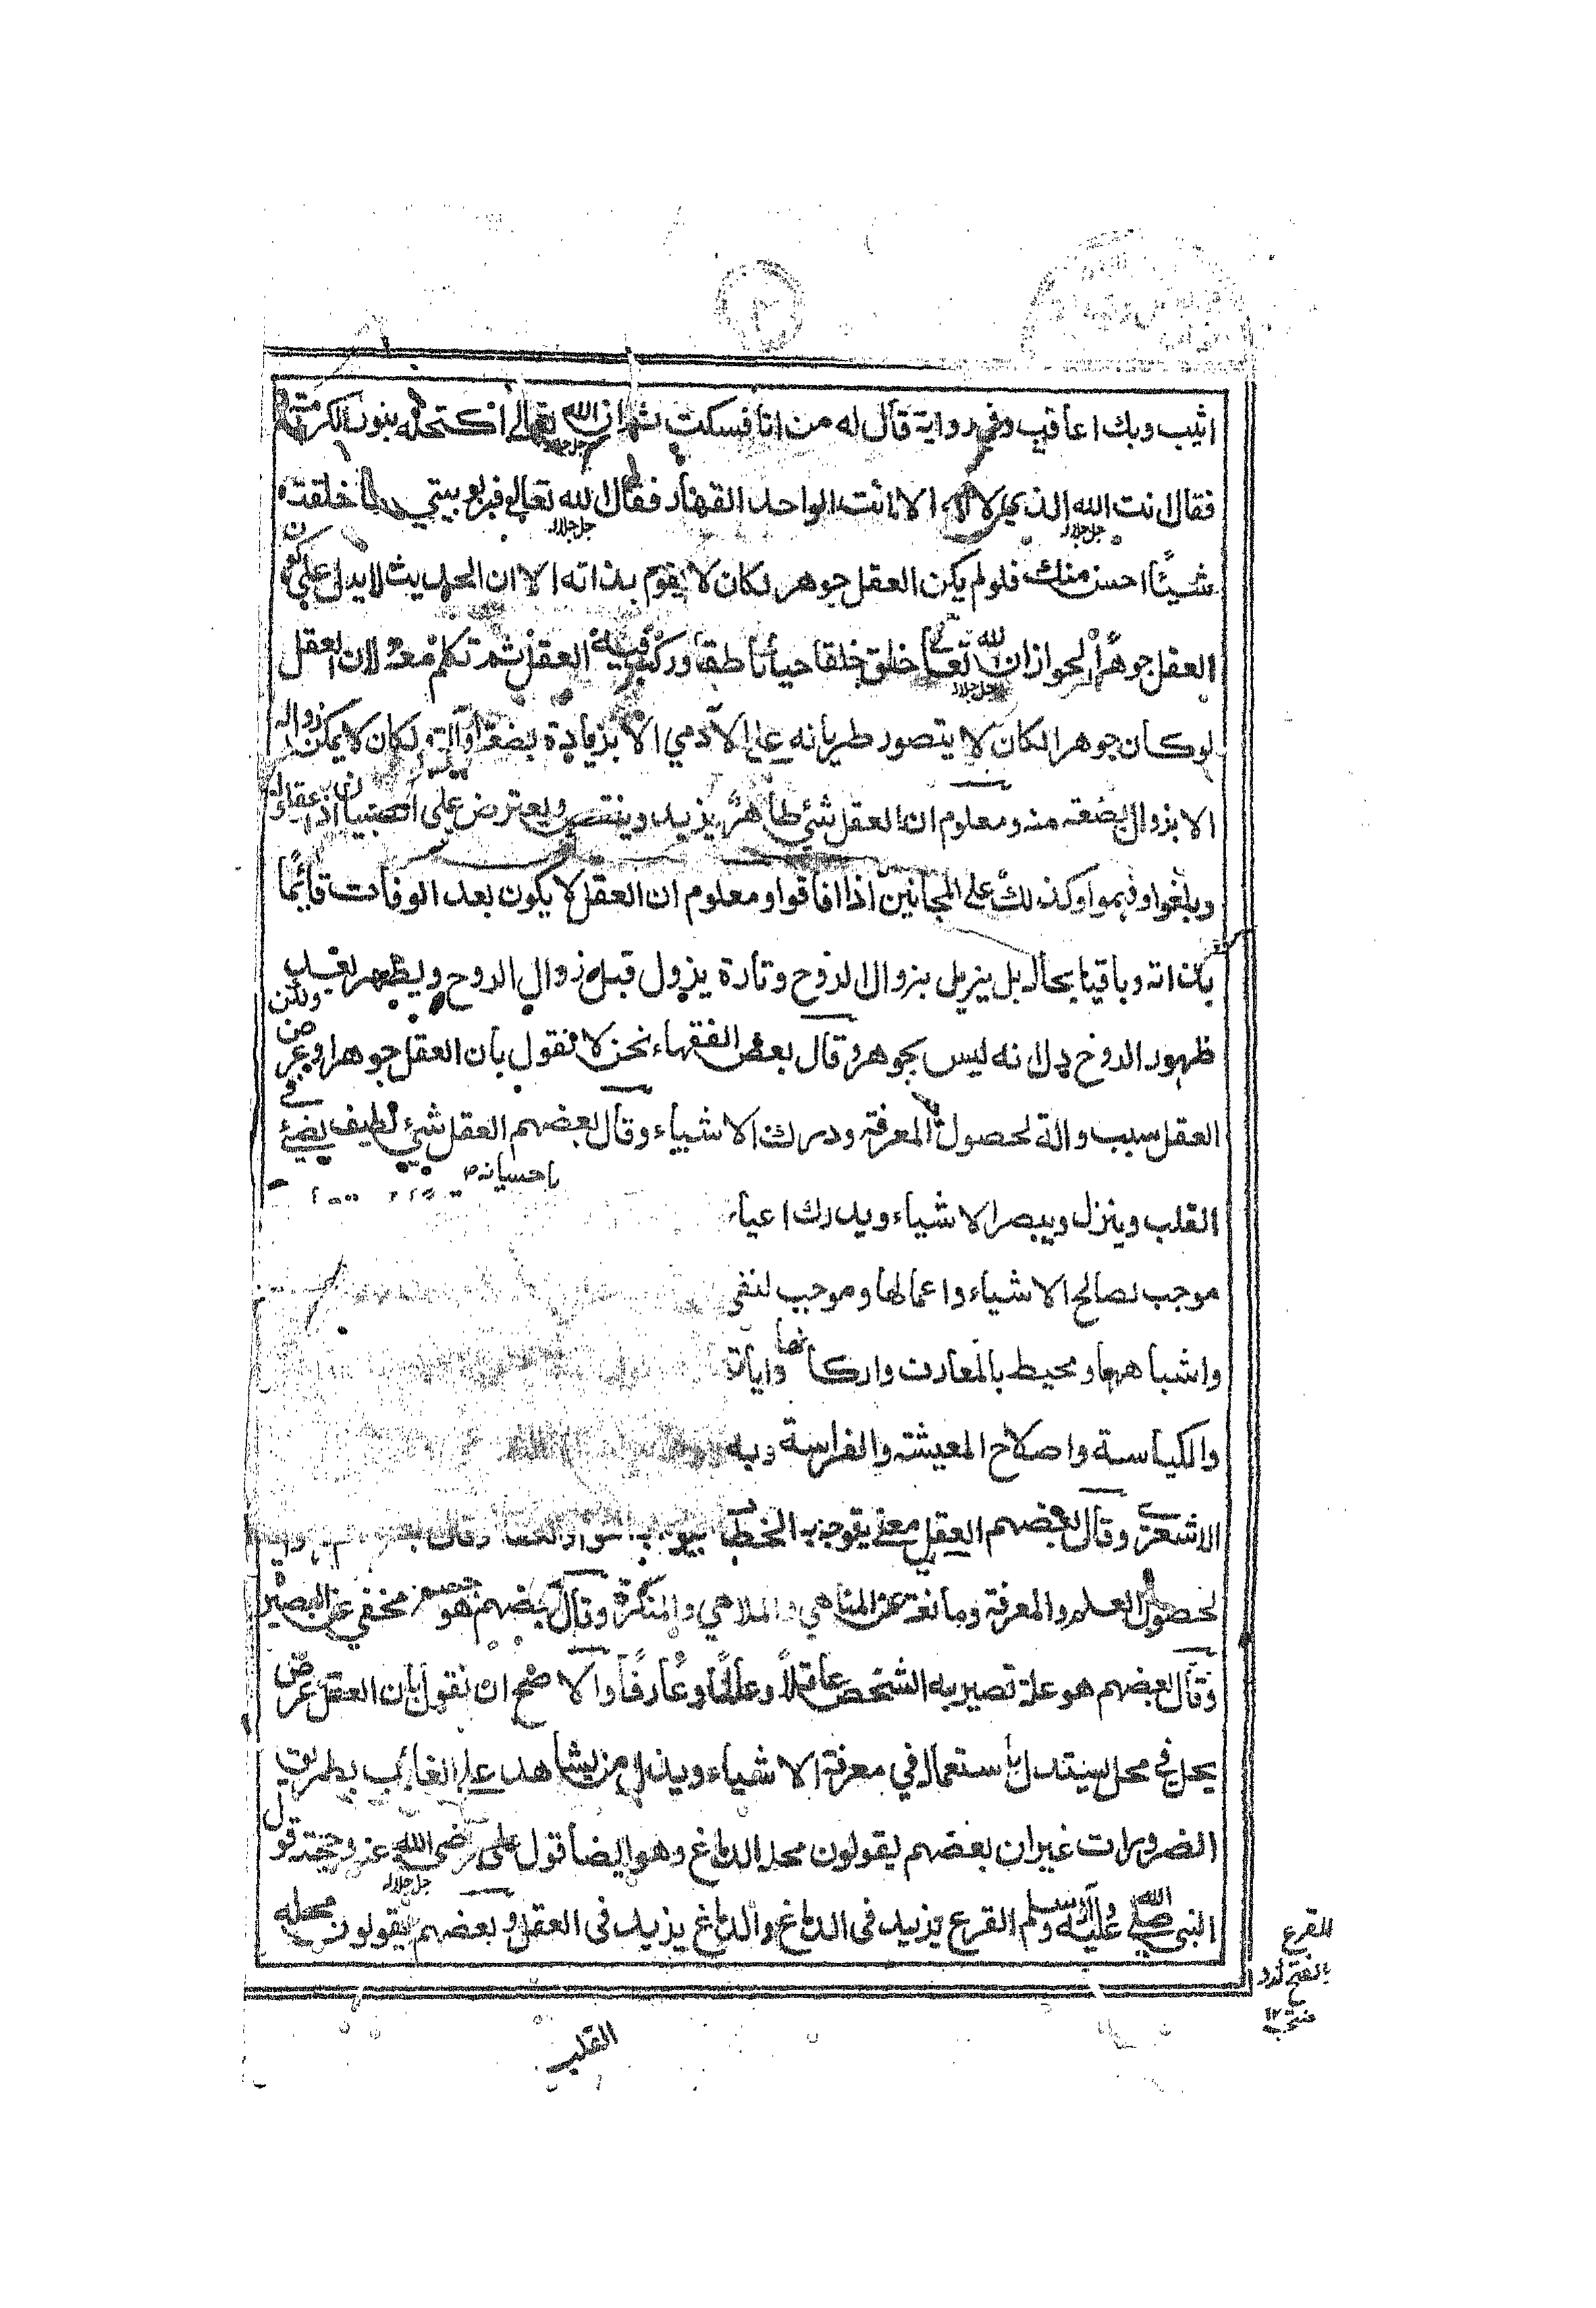 ٢
اثيب وبك اعاقب وفي رواية قال له من انا فسكت ثم ان الله تعالى اكتحله بنور الكرامة
جل جلاله
فقال انت الله الذي لا اله الا انت الواحد القهار فقال الله تعالى فبربوبيتي ما خلقت
جل جلاله جل جلاله
شيئًا احسن منك فلو لم يكن العقل جوهر لكان لا يقوم بذاته الا ان الحديث لا يدل على كون
العقل جوهرًا لجواز ان الله تعالى خلق خلقا حيا ناطقا وركب فيه العقل ثم تكلم معه ولان العقل
جل جلاله
لو كان جوهر الكان لا يتصور طريانه على الادمي الا بزيادة بضعة ولكان لا يمكن زواله
الا بزوال بضعة منه ومعلوم ان العقل شئ طاهر يزيد وينتقص ويعترض على الصبيان اذا عقلوا
وبلغوا وفهموا وكذلك على المجانين اذا افاقوا ومعلوم ان العقل لا يكون بعد الوفات قائمًا
بذاته وباقيا بحال بل يزيل بزوال الروح وتارة يزول قبل زوال الروح ويظهر بعد
ظهور الروح دل انه ليس بجوهر وقال بعض الفقهاء نحن لا نقول بان العقل جوهر او عرض ولكن
العقل سبب والة لحصول المعرفة ودرك الاشياء وقال بعضهم العقل شيء لطيف يضئ في
القلب وينزل ويبصر الاشياء ويدرك اعياء
موجب لصالح الاشياء واعمالها وموجب لنفي
واشباهها ومحيط بالمعارف واركانها واياة
والكياسة واصلاح المعيشة والفراسة وبه
الاشعري وقال بعضهم العقل معنے يقوجه به الخطاب
لحصول العلم والمعرفة ومانعة عن المناهي والملاهي والمنكرة وقال بعضهم هو مخفي عن البصير
وقال بعضهم هو علة تصير به الشخص عاقلًا وعالمًا وعارفًا والاصح ان نقول بان العقل عرض
يحل في محل يستدل باستعماله في معرفة الاشياء ويدل من يشاهد على الغائب بطريق
الضرورات غير ان بعضهم يقولون محله الدماغ وهو ايضا قول على رضى الله عنه وحجته قول
جل جلاله
النبي صلى الله عليه واله وسلم القرع يزيد فى الدماغ والدماغ يزيد فى العقل وبعضهم يقولون محله
القرع
بالفتح كدو
منتخب ١٢
القلب